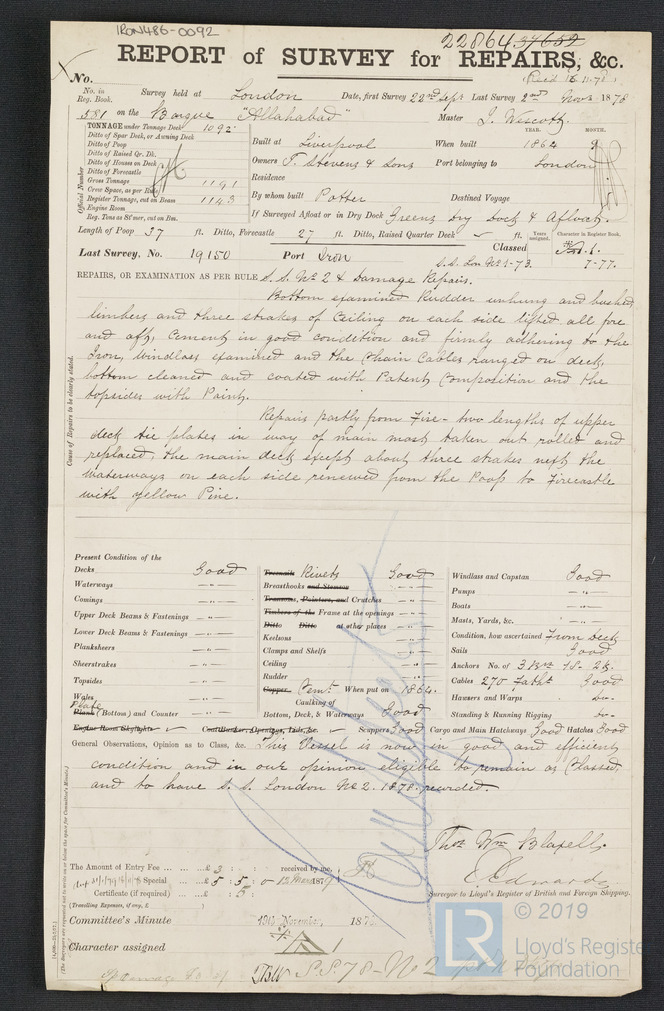 IRON486-0092
22864 37652
REPORT of SURVEY for REPAIRS, &c.
No.
(Recd 16.11.78)
No. in Reg. Book. Survey held at London Date, first Survey 22nd Sept Last Survey 2nd Novr 1878
581 on the Barque "Allahabad" Master J. Wescott.
TONNAGE under Tonnage Deck 1092
Ditto of Spar Deck, or Awning Deck
Ditto of Poop
Ditto of Raised Qr. Dk.
Ditto of Houses on Deck
Ditto of Forecastle
Gross Tonnage 1191
Crew Space, as per Rule
Register Tonnage, cut on Beam 1143
Engine Room
Reg. Tons as St'mer, cut on Bm.
Official Number
YEAR. MONTH.
Built at Liverpool When built 1864 9
Owners T. Stevens & Sons Port belonging to London
Residence
By whom built Potter Destined Voyage
If Surveyed Afloat or in Dry Dock Greens Dry Dock & Afloat.
Length of Poop 37 ft. Ditto, Forecastle 27 ft. Ditto, Raised Quarter Deck ft. Years assigned. Character in Register Book.
Last Survey, No. 19150 Port Iron Classed A.1.
S.S. Lon No 1-73. 7-77.
REPAIRS, OR EXAMINATION AS PER RULE S.S. No 2 & Damage Repairs.
Bottom examined Rudder unhung and bushed
limbers and three strakes of Ceiling on each side lifted all fore
and aft, Cement in good condition and firmly adhering to the
Iron, Windlass examined and the Chain Cables ranged on deck,
bottom cleaned and coated with Patent Composition and the
topsides with Paint.
Repairs partly from Fire - two lengths of upper
deck tie plates in way of main mast taken out rolled and
replaced, the main deck except about three strakes next the
waterways on each side renewed from the Poop to Firecastle
with yellow Pine.
Cause of Repairs to be clearly stated.
Present Condition of the
Decks Good
Waterways "
Comings "
Upper Deck Beams & Fastenings "
Lower Deck Beams & Fastenings "
Planksheers "
Sheerstrakes "
Topsides "
Wales "
Plate
Plank (Bottom) and Counter "
Engine Room Skylights
Treenails Rivets Good
Breasthooks and Stemson "
Transoms, Pointers, and Crutches "
Timbers of the Frame at the openings "
Ditto Ditto at other places "
Keelsons "
Clamps and Shelfs "
Ceiling "
Rudder "
Copper Cemt. When put on 1864.
Caulking of
Bottom, Deck, & Waterways Good
Scuppers Good
Windlass and Capstan Good
Pumps "
Boats "
Masts, Yards, &c. "
Condition, how ascertained From Deck
Sails Good
Anchors No. of 3 Br 1 S. 2 K.
Cables 270 Faths Good
Hawsers and Warps "
Standing & Running Rigging "
Cargo and Main Hatchways Good Hatches Good
General Observations, Opinion as to Class, &c. This Vessel is now in good and efficient
condition and in our opinion eligible to remain as Classed,
and to have S.S. London No 2. 1878. recorded.
Thos Wm Blaxell.
E. Edwards
Surveyor to Lloyd's Register of British and Foreign Shipping.
The Amount of Entry Fee £ 3 : : received by me,
Special £ 5 : 5 :
Certificate (if required) £ : 5 :
(Travelling Expenses, if any, £ )
Committee's Minute 19th November, 187
Character assigned A 1
TBW S.S. 78 - No 2
© 2019
LR
Lloyd's Register
Foundation